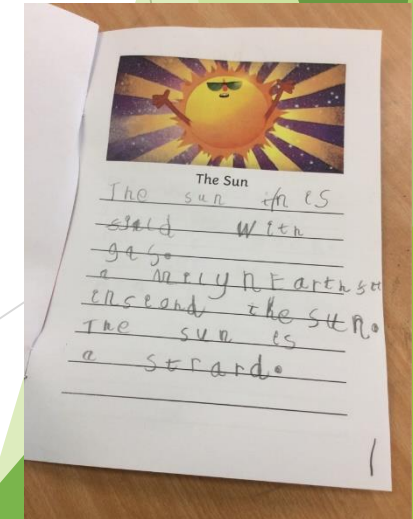 The Sun
The sun is
with
gas.
a milyn Earths
insiond the sun.
The sun is
a strard.